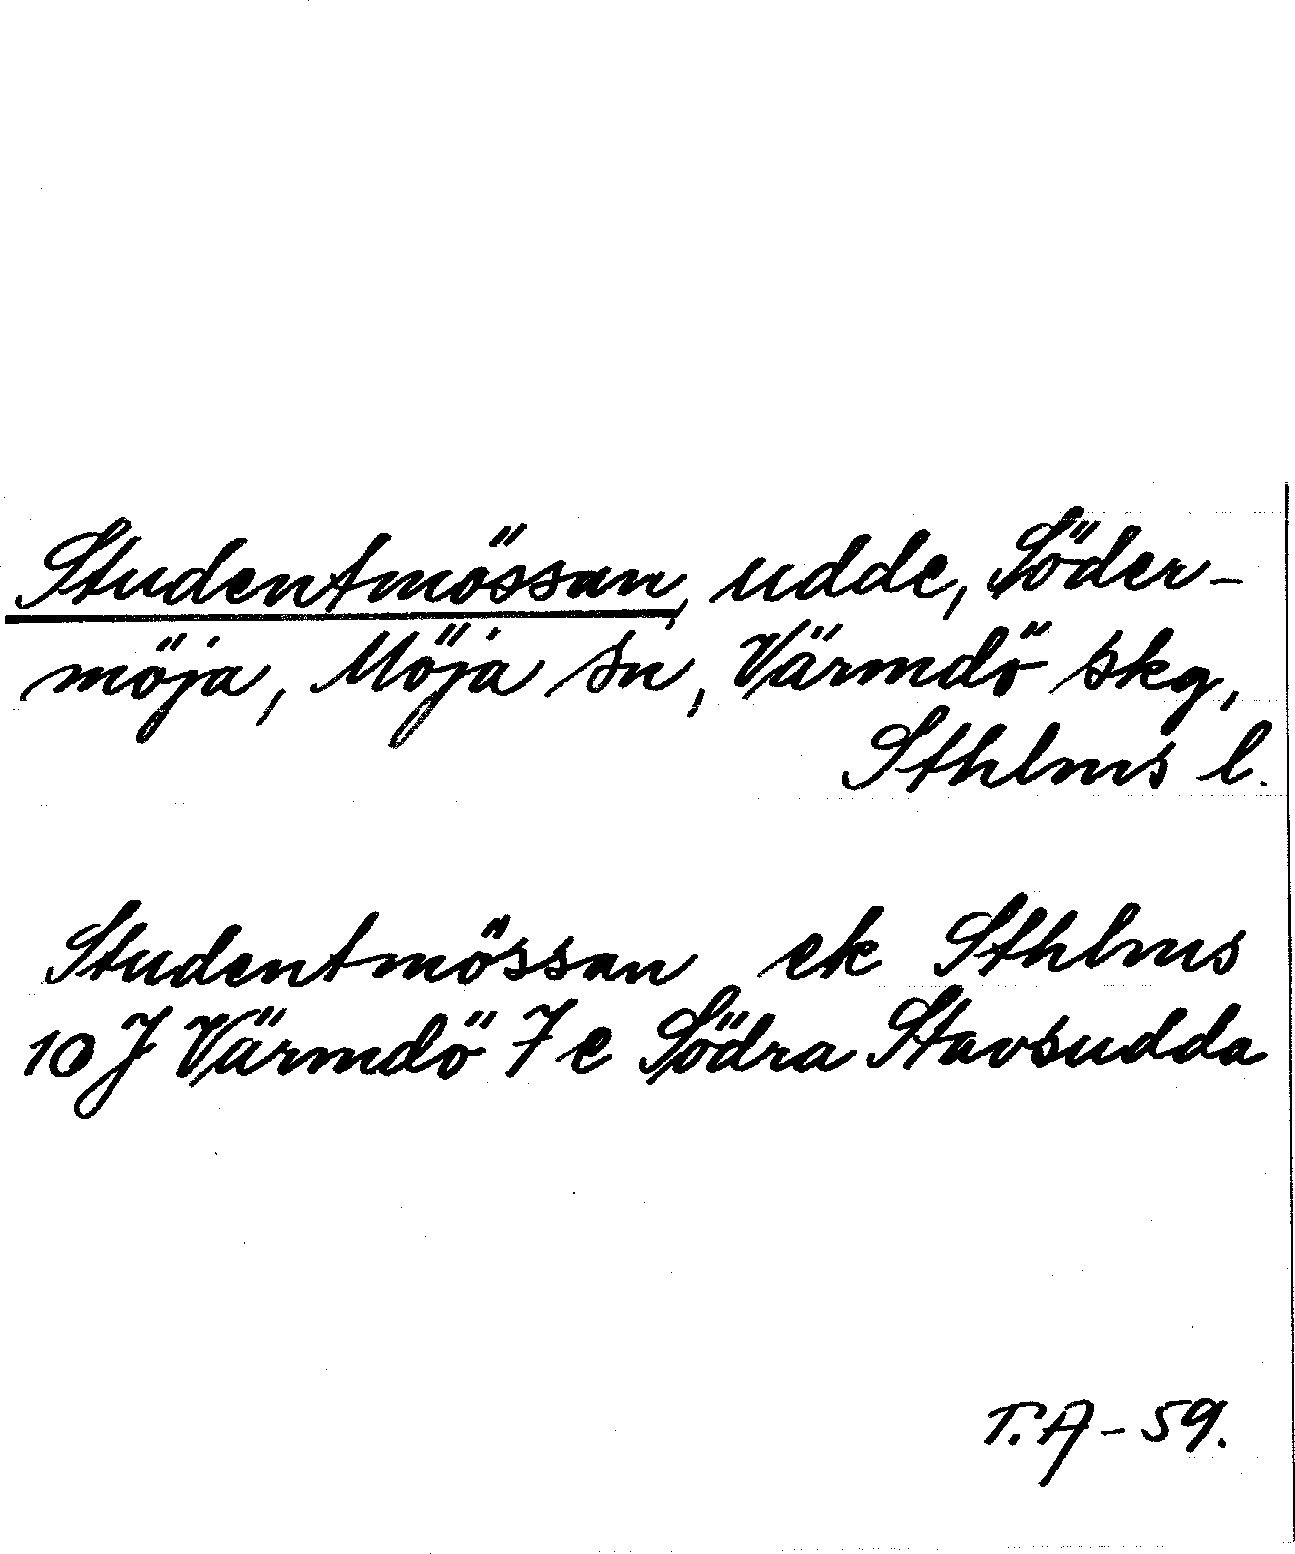 Studentmössan, udde, Söder-
möja, Möja sn, Värmdö skg,
Sthlms l.
Studentmössan ek Sthlms
10 J Värmdö 7 e Södra Stavsudda
T.A - 59.